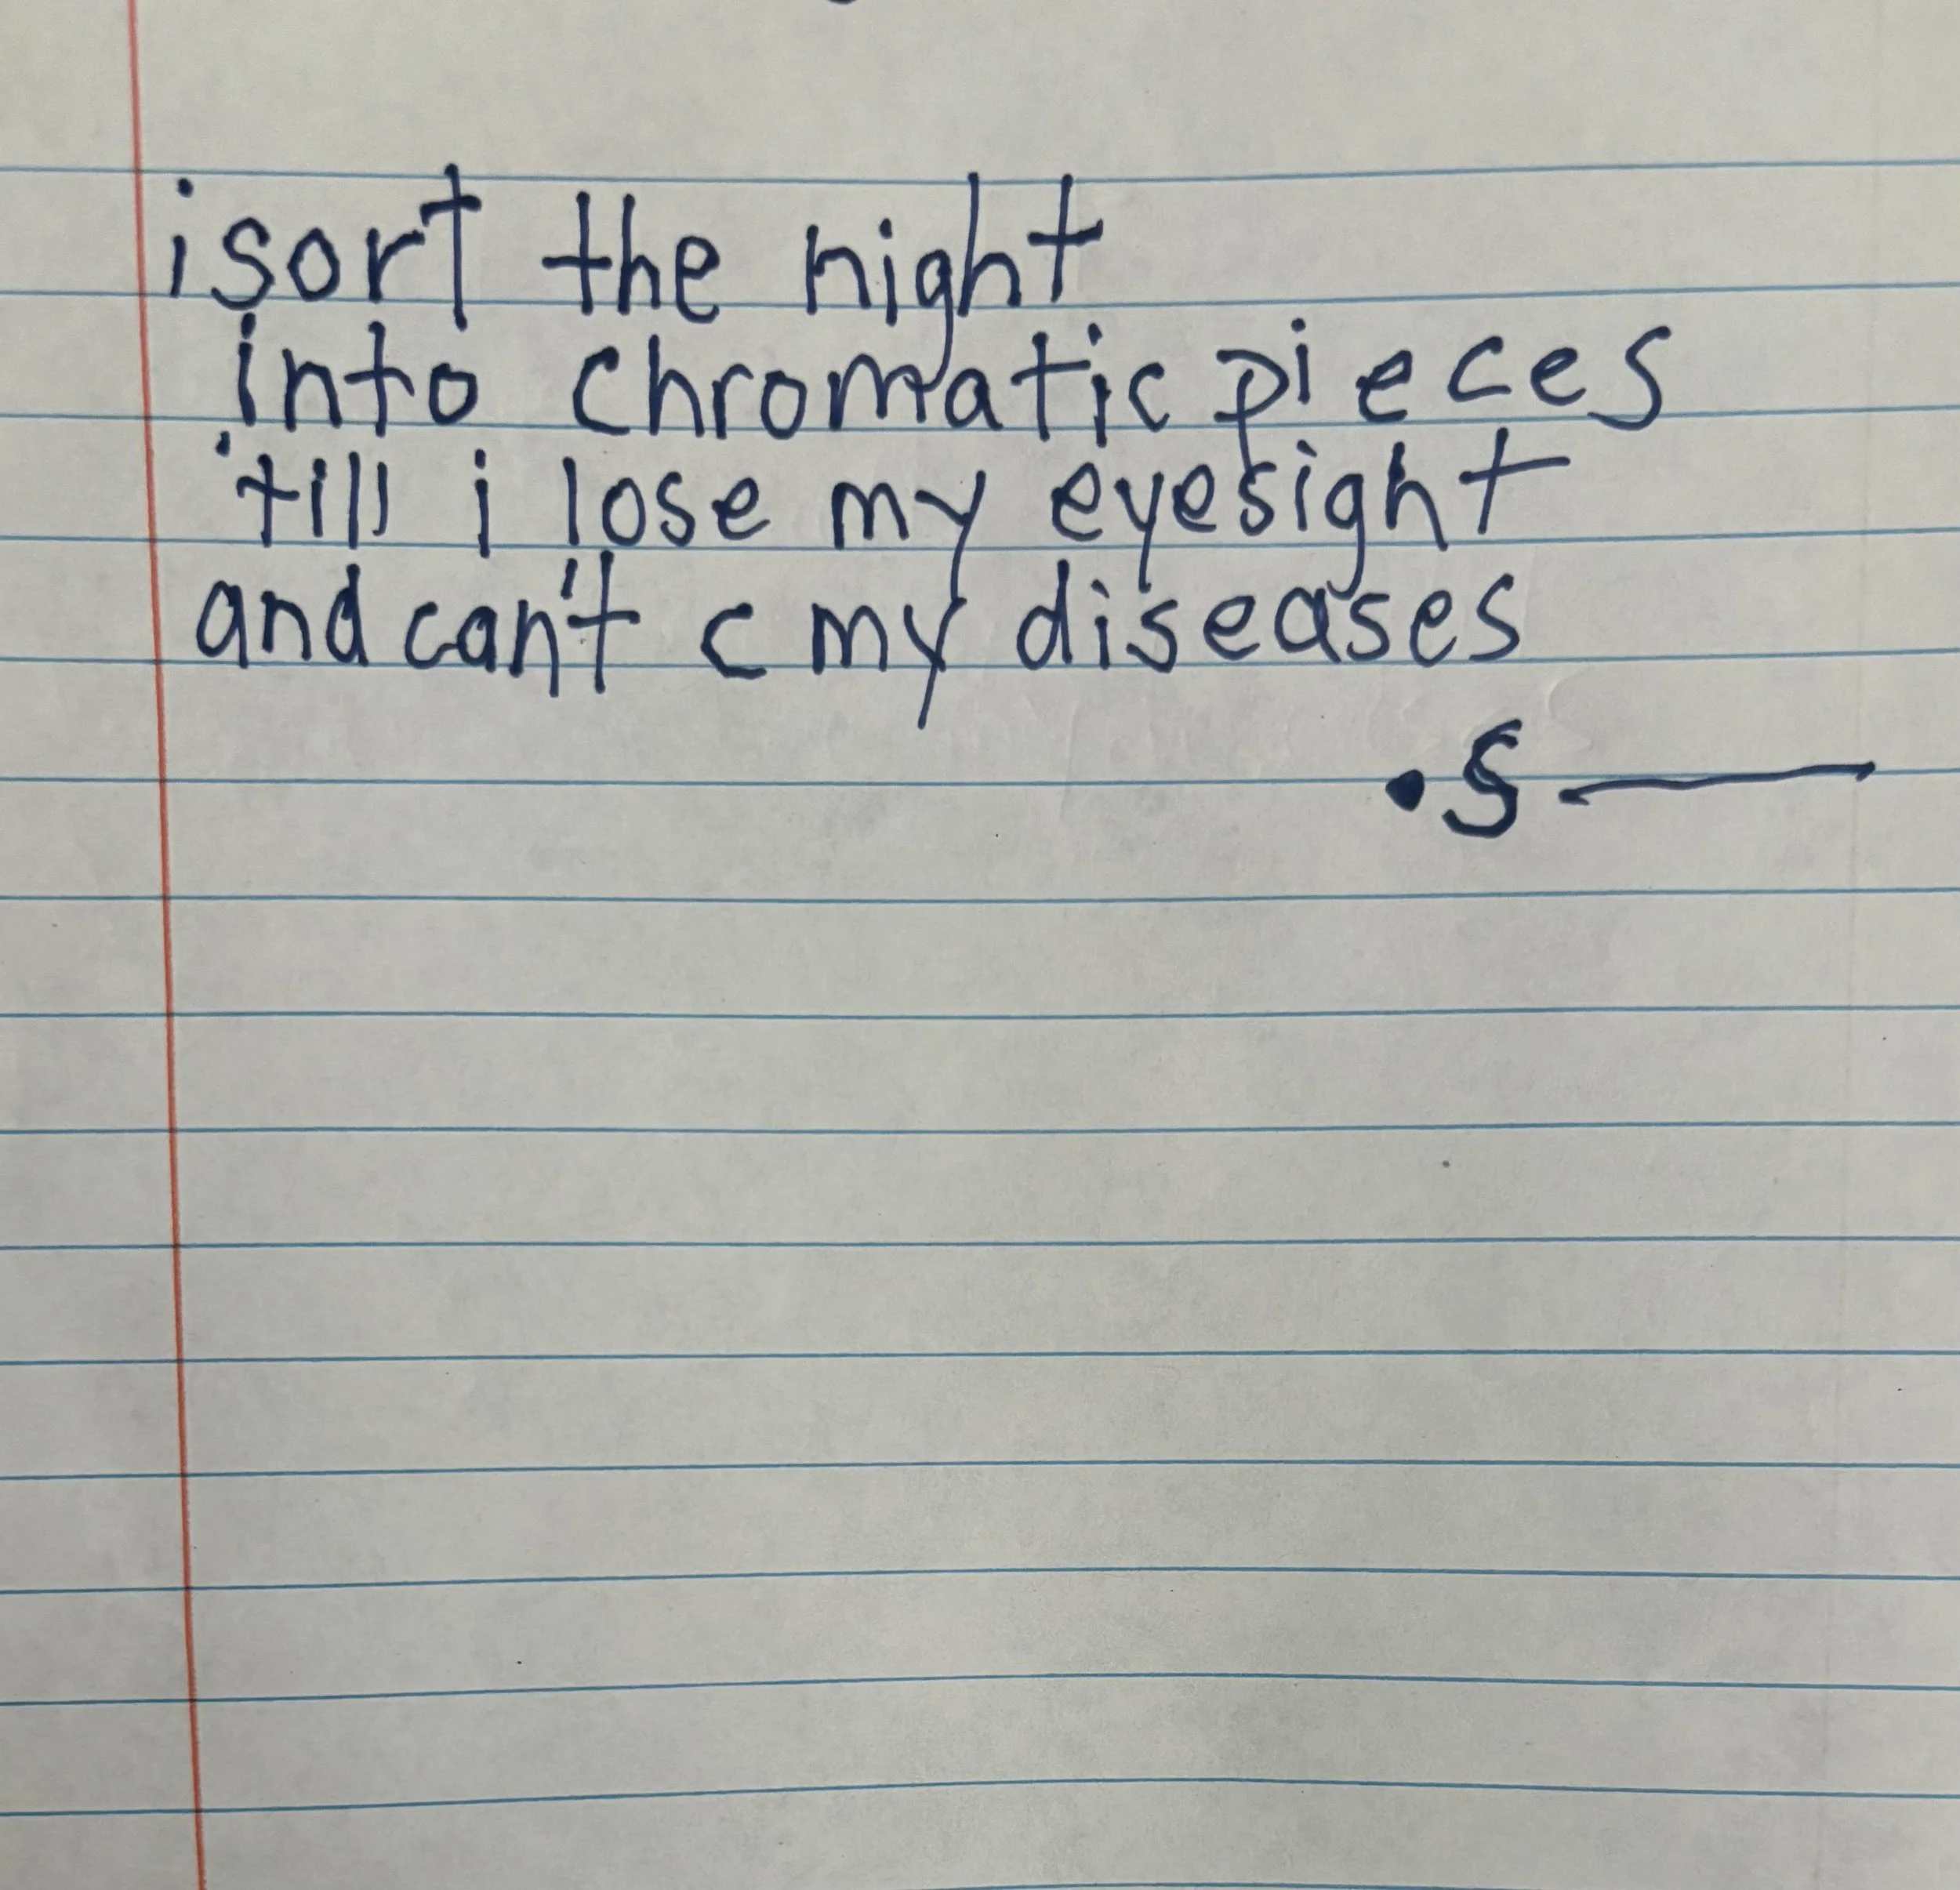 i sort the night
into chromatic pieces
'till i lose my eyesight
and can't c my diseases
•S—